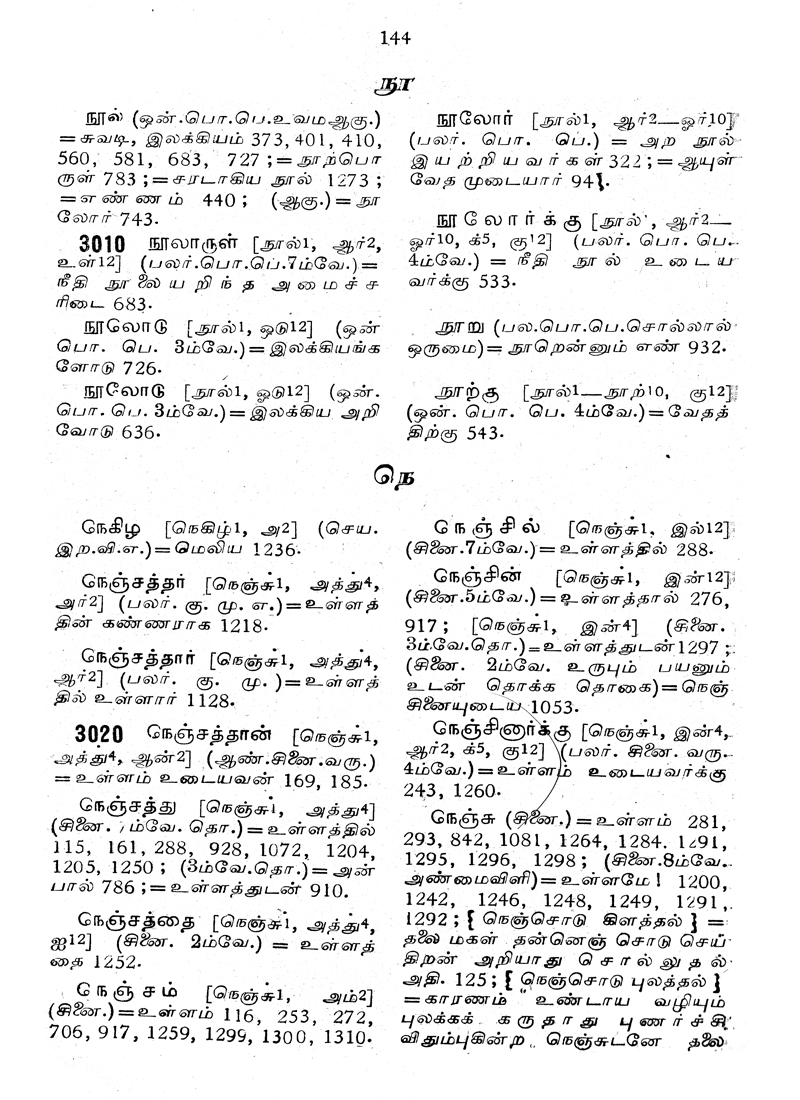 144
நூ
நூல் (ஒன்.பொ.பெ.உவமஆகு.)
=சுவடி, இலக்கியம் 373, 401, 410,
560, 581, 683, 727 ;=நூற்பொ
ருள் 783 ;=சரடாகிய நூல் 1273 ;
=எண்ணம் 440 ; (ஆகு.)=நூ
லோர் 743.
3010 நூலாருள் [நூல்1, ஆர்2,
உள்12] (பலர்.பொ.பெ.7ம்வே.)=
நீதி நூலை யறிந்த அமைச்ச
ரிடை 683.
நூலொடு [நூல்1, ஒடு12] (ஒன்
பொ. பெ. 3ம்வே.)=இலக்கியங்க
ளோடு 726.
நூலோடு [நூல்1, ஓடு12] (ஒன்.
பொ. பெ. 3ம்வே.)=இலக்கிய அறி
வோடு 636.
நூலோர் [நூல்1, ஆர்2—ஓர்10]
(பலர். பொ. பெ.) = அற நூல்
இயற்றியவர்கள் 322 ;=ஆயுள்
வேத முடையார் 941.
நூலோர்க்கு [நூல்1, ஆர்2—
ஓர்10, க்5, கு12] (பலர். பொ. பெ.
4ம்வே.) = நீதி நூல் உடைய
வர்க்கு 533.
நூறு (பல.பொ.பெ.சொல்லால்
ஒருமை)=நூறென்னும் எண் 932.
நூற்கு [நூல்1—நூற்10, கு12]
(ஒன். பொ. பெ. 4ம்வே.)=வேதத்
திற்கு 543.
நெ
நெகிழ [நெகிழ்1, அ2] (செய.
இற.வி.எ.)=மெலிய 1236.
நெஞ்சத்தர் [நெஞ்சு1, அத்து4,
அர்2] (பலர். கு. மு. எ.)=உள்ளத்
தின் கண்ணராக 1218.
நெஞ்சத்தார் [நெஞ்சு1, அத்து4,
ஆர்2] (பலர். கு. மு. )=உள்ளத்
தில் உள்ளார் 1128.
3020 நெஞ்சத்தான் [நெஞ்சு1,
அத்து4, ஆன்2] (ஆண்.சினை.வரு.)
=உள்ளம் உடையவன் 169, 185.
நெஞ்சத்து [நெஞ்சு1, அத்து4]
(சினை. 7ம்வே. தொ.)=உள்ளத்தில்
115, 161, 288, 928, 1072, 1204,
1205, 1250 ; (3ம்வே.தொ.)=அன்
பால் 786 ;=உள்ளத்துடன் 910.
நெஞ்சத்தை [நெஞ்சு1, அத்து4,
ஐ12] (சினை. 2ம்வே.) = உள்ளத்
தை 1252.
நெஞ்சம் [நெஞ்சு1, அம்2]
(சினை.)=உள்ளம் 116, 253, 272,
706, 917, 1259, 1299, 1300, 1310.
நெஞ்சில் [நெஞ்சு1, இல்12]
(சினை.7ம்வே.)=உள்ளத்தில் 288.
நெஞ்சின் [நெஞ்சு1, இன்12]
(சினை.5ம்வே.)=உள்ளத்தால் 276,
917 ; [நெஞ்சு1, இன்4] (சினை.
3ம்வே.தொ.)=உள்ளத்துடன்1297 ;
(சினை. 2ம்வே. உருபும் பயனும்
உடன் தொக்க தொகை)=நெஞ்
சினையுடைய 1053.
நெஞ்சினார்க்கு [நெஞ்சு1, இன்4,
ஆர்2, க்5, கு12] (பலர். சினை. வரு.
4ம்வே.)=உள்ளம் உடையவர்க்கு
243, 1260.
நெஞ்சு (சினை.)=உள்ளம் 281,
293, 842, 1081, 1264, 1284. 1291,
1295, 1296, 1298 ; (சினை.8ம்வே.
அண்மைவிளி)=உள்ளமே! 1200,
1242, 1246, 1248, 1249, 1291,
1292 ; { நெஞ்சொடு கிளத்தல் } =
தலை மகள் தன்னெஞ் சொடு செய்
திறன் அறியாது சொல்லுதல்
அதி. 125 ; { நெஞ்சொடு புலத்தல் }
=காரணம் உண்டாய வழியும்
புலக்கக் கருதாது புணர்ச்சி
விதும்புகின்ற நெஞ்சுடனே தலை